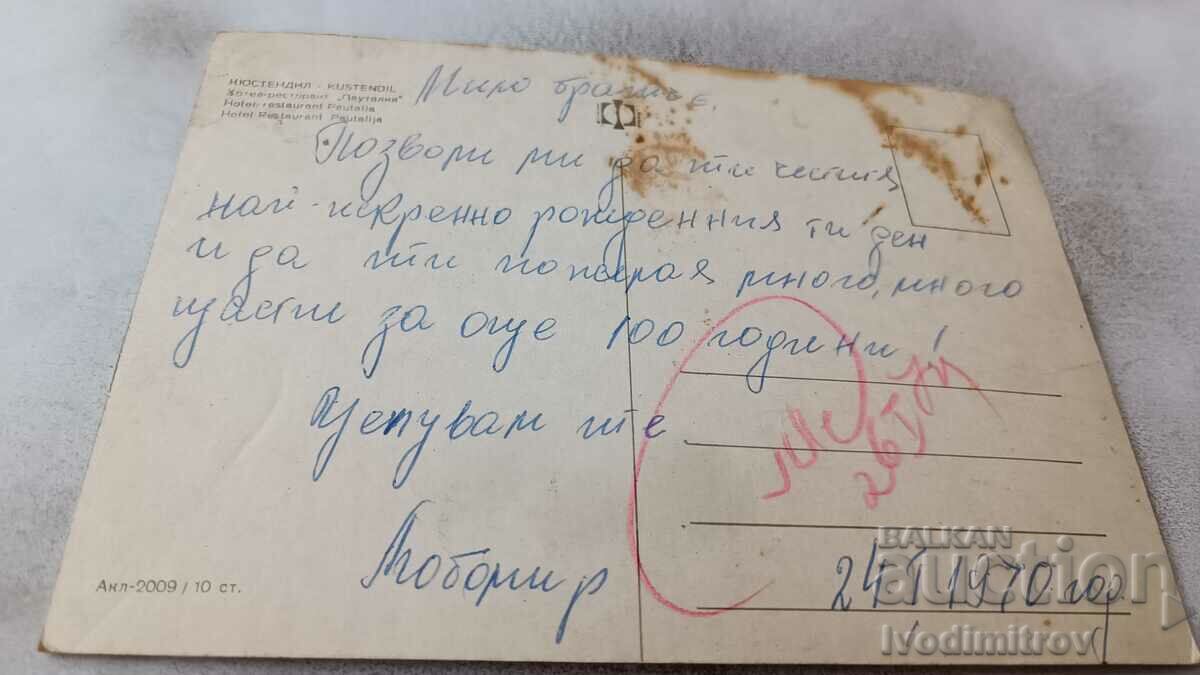 КЮСТЕНДИЛ - KUSTENDIL
Хотел-ресторант „Пауталия"
Hotel-restaurant Pautalia
Hotel Restaurant Pautalija
Мило братче,
Позволи ми да ти честитя
най-искренно рожденния ти ден
и да ти пожелая много, много
щастие за още 100 години!
Целувам те
Любомир
26 I
24 I 1970 год.
Акл-2009 / 10 ст.
BALKAN
auction
Ivodimitrov